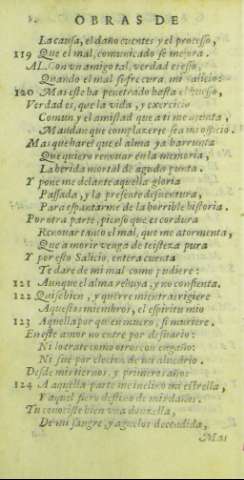 OBRAS DE
La causa, el daño cuentes y el processo,
119 Que el mal, comunicado se mejora.
AL. Con un amigo tal, verdad es esso,
Quando el mal sufre cura mi Salicio:
120 Mas este ha penetrado hasta el huesso,
Verdad es, que la vida, y exercicio
Comun y el amistad que a ti me ayunta,
Mandan que complazerte sea mi oficio.
Mas que haré? que el alma ya barrunta
Que quiero renovar en la memoria,
La herida mortal de aguda punta.
Y pone me delante aquella gloria
Passada, y la presente desventura,
Para espantarme de la horrible historia.
Por otra parte, pienso que es cordura
Renovar tanto el mal, que me atormenta,
Que a morir venga de tristeza pura
Y por esto Salicio, entera cuenta
Te dare de mi mal como pudiere:
121 Aunque el alma rehuya, y no consienta.
122 Quise bien, y querre mientras rigiere
Aquestos miembros, el espiritu mio
123 Aquella por quien muero, si muriere.
En este amor no entre por desvario:
Ni lo trate como otros con engaños:
Ni fue por eleccion de mi alvedrio.
Desde mis tiernos, y primeros años
124 A aquella parte me inclinó mi estrella,
Y aquel fiero destino de mis daños.
Tu conociste bien una donzella,
De mi sangre, y aguelos decendida,
Mas